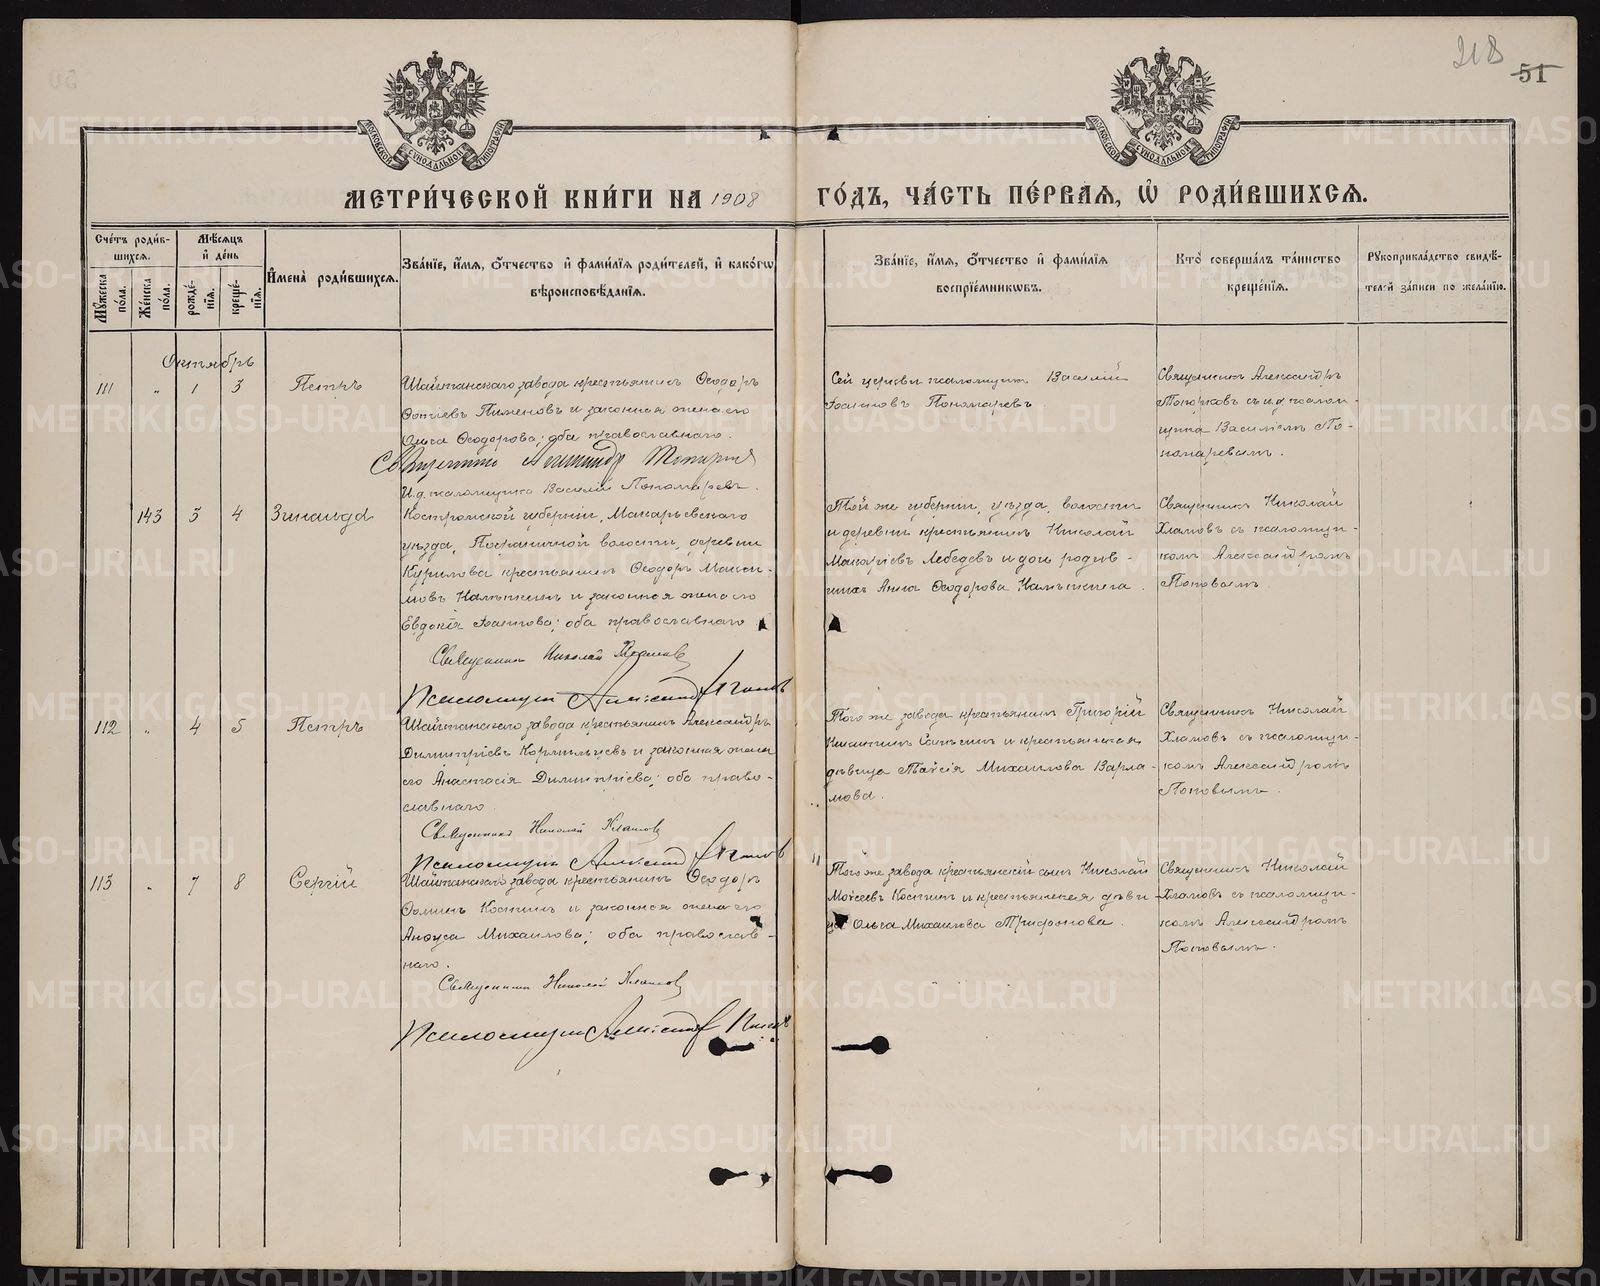 218
51
МОСКОВСКОЙ СУНОДАЛЬНОЙ ТИПОГРАФІИ
МОСКОВСКОЙ СУНОДАЛЬНОЙ ТИПОГРАФІИ
МЕТРИ́ЧЕСКОЙ КНИ́ГИ НА 1908 ГО́ДЪ, ЧА́СТЬ ПЕ́РВАЯ, Ѡ҆ РОДИ́ВШИХСЯ.
Сче́тъ роди́в-
шихся.
Мѣ́сяцъ
и҆ де́нь
Му́жеска по́ла.
Же́нска по́ла.
рожде́-
нїя.
креще́-
нїя.
И҆мена̀ роди́вшихся.
Зва́нїе, и҆́мя, ѻ҆́тчество и҆ фами́лїя роди́телей, и҆ како́гѡ
вѣроисповѣ́данїя.
Зва́нїе, и҆́мя, ѻ҆́тчество и҆ фами́лїя
воспрїе́мникѡвъ.
Кто̀ соверша́лъ та́инство
креще́нїя.
Рꙋкоприкла́дство свидѣ́-
телей за́писи по жела́нїю.
Октябрь
111 " 1 3 Петръ
Шайтанскаго завода крестьянинъ Ѳеодоръ
Фотіевъ Пименовъ и законная жена его
Ольга Ѳеодорова; оба православнаго.
Священникъ Александр Топорков
И.д. псаломщика Василій Пономаревъ.
Сей церкви псаломщикъ Василій
Іоанновъ Пономаревъ
Священникъ Александръ
Топорковъ съ и.д. псалом-
щика Василіемъ По-
номаревымъ.
143 3 4 Зинаида
Костромской губерніи, Макарьевскаго
уѣзда, волости, деревни
Курилова крестьянинъ Ѳеодоръ Макси-
мовъ и законная жена его
Евдокія Іоаннова; оба православнаго
Священникъ Николай Хламовъ
Псаломщикъ Александръ Поповъ
Той же губерніи, уѣзда, волости
и деревни крестьянинъ Николай
Макаріевъ Лебедевъ и дочь родив-
шихъ Анна Ѳеодорова
Священникъ Николай
Хламовъ съ псаломщи-
комъ Александромъ
Поповымъ
112 " 4 5 Петръ
Шайтанскаго завода крестьянинъ Александръ
Димитріевъ Кормильцевъ и законная жена
его Анастасія Димитріева; оба право-
славнаго
Священникъ Николай Хламовъ
Псаломщикъ Александръ Поповъ
Того же завода крестьянинъ Григорій
и крестьянская
дѣвица Таисія Михаилова Варла-
мова.
Священникъ Николай
Хламовъ съ псаломщи-
комъ Александромъ
Поповымъ
113 " 7 8 Сергій
Шайтанскаго завода крестьянинъ Ѳеодоръ
Ѳоминъ Костинъ и законная жена его
Анфуса Михаилова; оба православ-
наго.
Священникъ Николай Хламовъ
Псаломщикъ Александръ Поповъ
Того же завода крестьянскій сынъ Николай
Моѵсеевъ Костинъ и крестьянская дѣви-
ца Ольга Михаилова Трифонова.
Священникъ Николай
Хламовъ съ псаломщи-
комъ Александромъ
Поповымъ.
METRIKI.GASO-URAL.RU